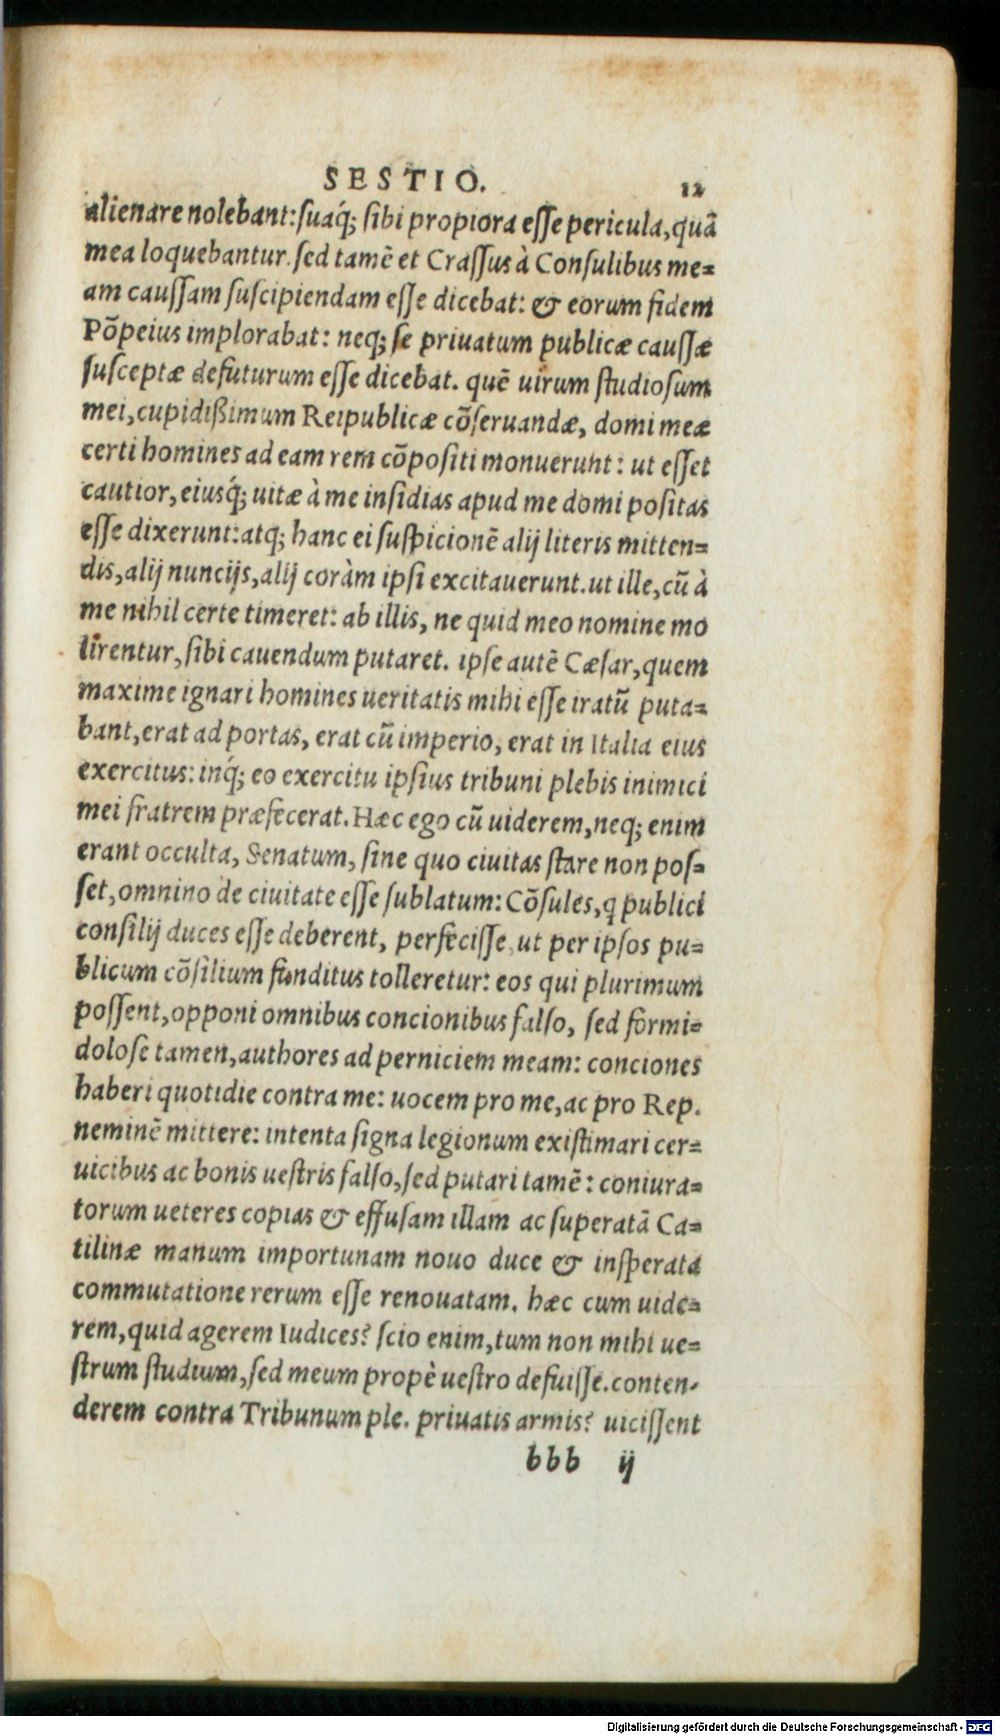 SESTIO. 12
alienare nolebant: suaq́; sibi propiora esse pericula, quã
mea loquebantur. sed tamẽ et Crassus à Consulibus me=
am caussam suscipiendam esse dicebat: & eorum fidem
Põpeius implorabat: neq; se priuatum publicæ caussæ
susceptæ defuturum esse dicebat. quẽ uirum studiosum
mei, cupidißimum Reipublicæ cõseruandæ, domi meæ
certi homines ad eam rem cõpositi monuerunt: ut esset
cautior, eiusq́; uitæ à me insidias apud me domi positas
esse dixerunt: atq; hanc ei suspicionẽ alij literis mitten=
dis, alij nuncijs, alij coràm ipsi excitauerunt. ut ille, cũ à
me nihil certe timeret: ab illis, ne quid meo nomine mo
lirentur, sibi cauendum putaret. ipse autẽ Cæsar, quem
maxime ignari homines ueritatis mihi esse iratũ puta=
bant, erat ad portas, erat cũ imperio, erat in Italia eius
exercitus: inq́; eo exercitu ipsius tribuni plebis inimici
mei fratrem præfecerat. Hæc ego cũ uiderem, neq; enim
erant occulta, Senatum, sine quo ciuitas stare non pos=
set, omnino de ciuitate esse sublatum: Cõsules, q publici
consilij duces esse deberent, perfecisse, ut per ipsos pu=
blicum cõsilium funditus tolleretur: eos qui plurimum
possent, opponi omnibus concionibus falso, sed formi=
dolose tamen, authores ad perniciem meam: conciones
haberi quotidie contra me: uocem pro me, ac pro Rep.
neminẽ mittere: intenta signa legionum existimari cer=
uicibus ac bonis uestris falso, sed putari tamẽ: coniura=
torum ueteres copias & effusam illam ac superatã Ca=
tilinæ manum importunam nouo duce & insperata
commutatione rerum esse renouatam. hæc cum uide=
rem, quid agerem Iudices? scio enim, tum non mihi ue=
strum studium, sed meum propè uestro defuisse. conten-
derem contra Tribunum ple. priuatis armis? uicissent
bbb ij
Digitalisierung gefördert durch die Deutsche Forschungsgemeinschaft - DFG